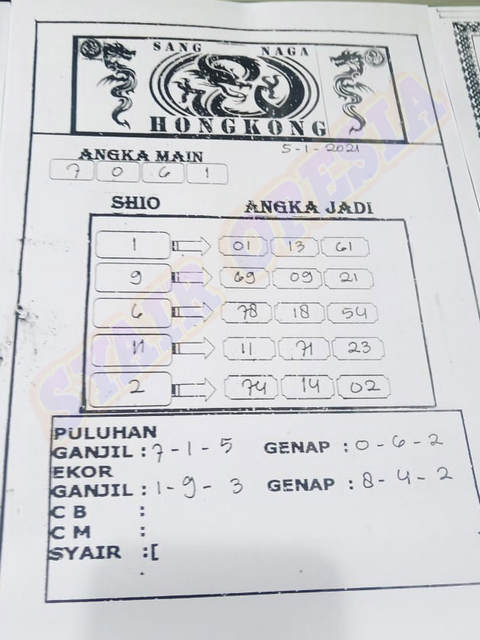 SANG NAGA
HONGKONG
5-1-2021
ANGKA MAIN
7 0 6 1
SHIO ANGKA JADI
1 01 13 61
9 69 09 21
6 78 18 54
11 11 71 23
2 74 14 02
PULUHAN
GANJIL : 7-1-5 GENAP : 0-6-2
EKOR
GANJIL : 1-9-3 GENAP : 8-4-2
C B :
C M :
SYAIR :[
SYAIR OPESIA